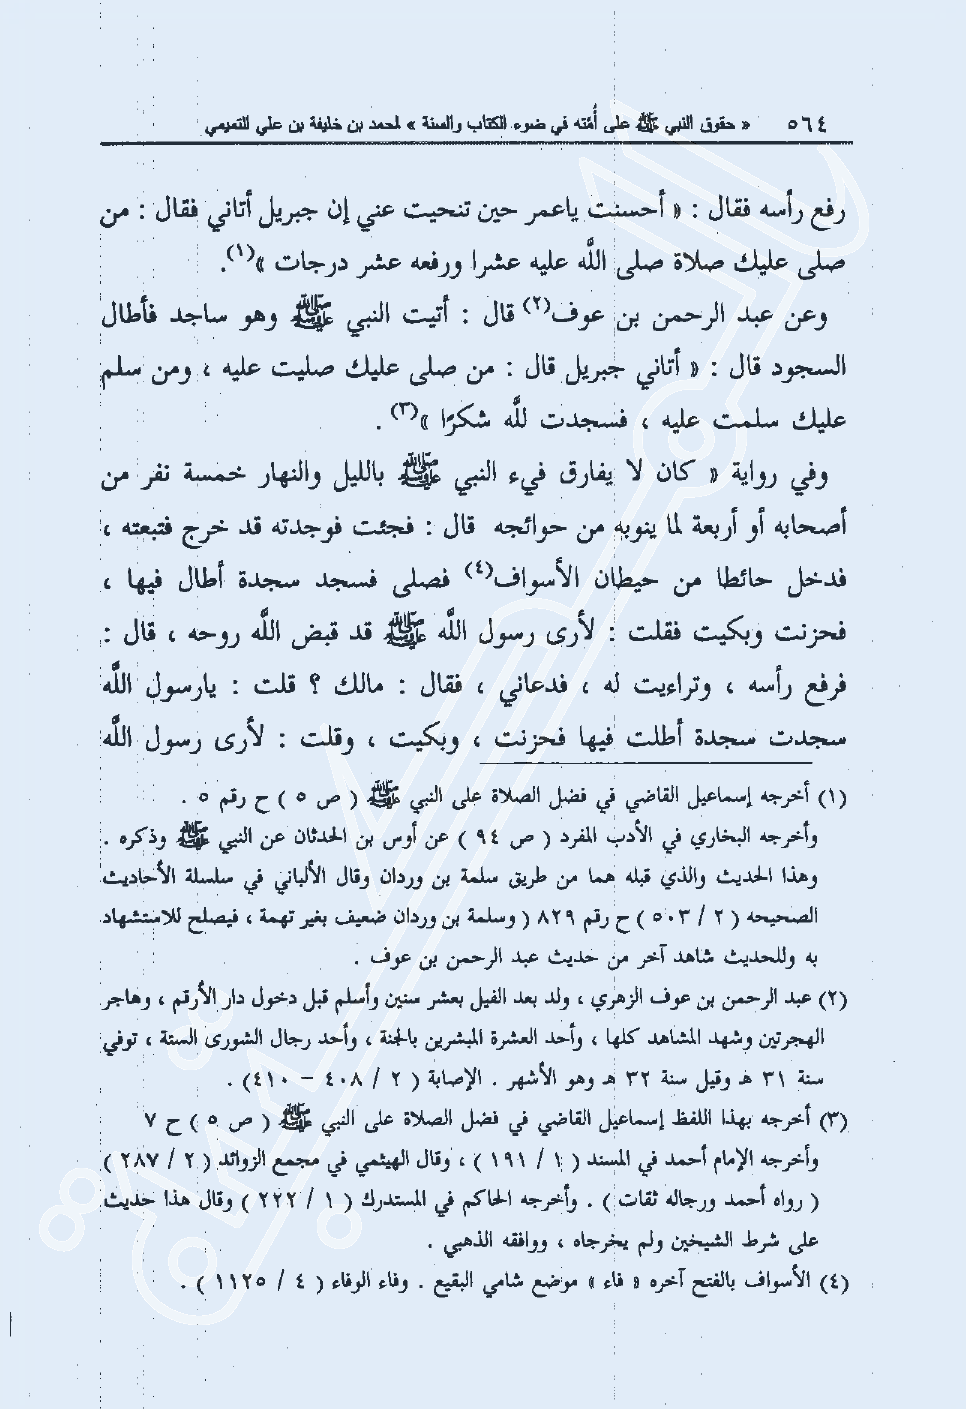 ٥٦٤ « حقوق النبي ﷺ على أُمته في ضوء الكتاب والسنة » لمحمد بن خليفة بن علي التميمي
رفع رأسه فقال : « أحسنت ياعمر حين تنحيت عني إن جبريل أتاني فقال : من
صلى عليك صلاة صلى اللَّه عليه عشرا ورفعه عشر درجات »(١).
وعن عبد الرحمن بن عوف(٢) قال : أتيت النبي ﷺ وهو ساجد فأطال
السجود قال : « أتاني جبريل قال : من صلى عليك صليت عليه ، ومن سلم
عليك سلمت عليه ، فسجدت للَّه شكرًا »(٣) .
وفي رواية « كان لا يفارق فيء النبي ﷺ بالليل والنهار خمسة نفر من
أصحابه أو أربعة لما ينوبه من حوائجه قال : فجئت فوجدته قد خرج فتبعته ،
فدخل حائطا من حيطان الأسواف(٤) فصلى فسجد سجدة أطال فيها ،
فحزنت وبكيت فقلت : لأرى رسول اللَّه ﷺ قد قبض اللَّه روحه ، قال :
فرفع رأسه ، وتراءيت له ، فدعاني ، فقال : مالك ؟ قلت : يارسول اللَّه
سجدت سجدة أطلت فيها فحزنت ، وبكيت ، وقلت : لأرى رسول اللَّه
(١) أخرجه إسماعيل القاضي في فضل الصلاة على النبي ﷺ ( ص ٥ ) ح رقم ٥ .
وأخرجه البخاري في الأدب المفرد ( ص ٩٤ ) عن أوس بن الحدثان عن النبي ﷺ وذكره .
وهذا الحديث والذي قبله هما من طريق سلمة بن وردان وقال الألباني في سلسلة الأحاديث
الصحيحه ( ٢ / ٥٠٣ ) ح رقم ٨٢٩ ( وسلمة بن وردان ضعيف بغير تهمة ، فيصلح للاستشهاد
به وللحديث شاهد آخر من حديث عبد الرحمن بن عوف .
(٢) عبد الرحمن بن عوف الزهري ، ولد بعد الفيل بعشر سنين وأسلم قبل دخول دار الأرقم ، وهاجر
الهجرتين وشهد المشاهد كلها ، وأحد العشرة المبشرين بالجنة ، وأحد رجال الشورى الستة ، توفي
سنة ٣١ هـ وقيل سنة ٣٢ هـ وهو الأشهر . الإصابة ( ٢ / ٤٠٨ – ٤١٠) .
(٣) أخرجه بهذا اللفظ إسماعيل القاضي في فضل الصلاة على النبي ﷺ ( ص ٥ ) ح ٧
وأخرجه الإمام أحمد في المسند ( ١ / ١٩١ ) ، وقال الهيثمي في مجمع الزوائد ( ٢ / ٢٨٧ )
( رواه أحمد ورجاله ثقات ) . وأخرجه الحاكم في المستدرك ( ١ / ٢٢٢ ) وقال هذا حديث
على شرط الشيخين ولم يخرجاه ، ووافقه الذهبي .
(٤) الأسواف بالفتح آخره « فاء » موضع شامي البقيع . وفاء الوفاء ( ٤ / ١١٢٥ ) .